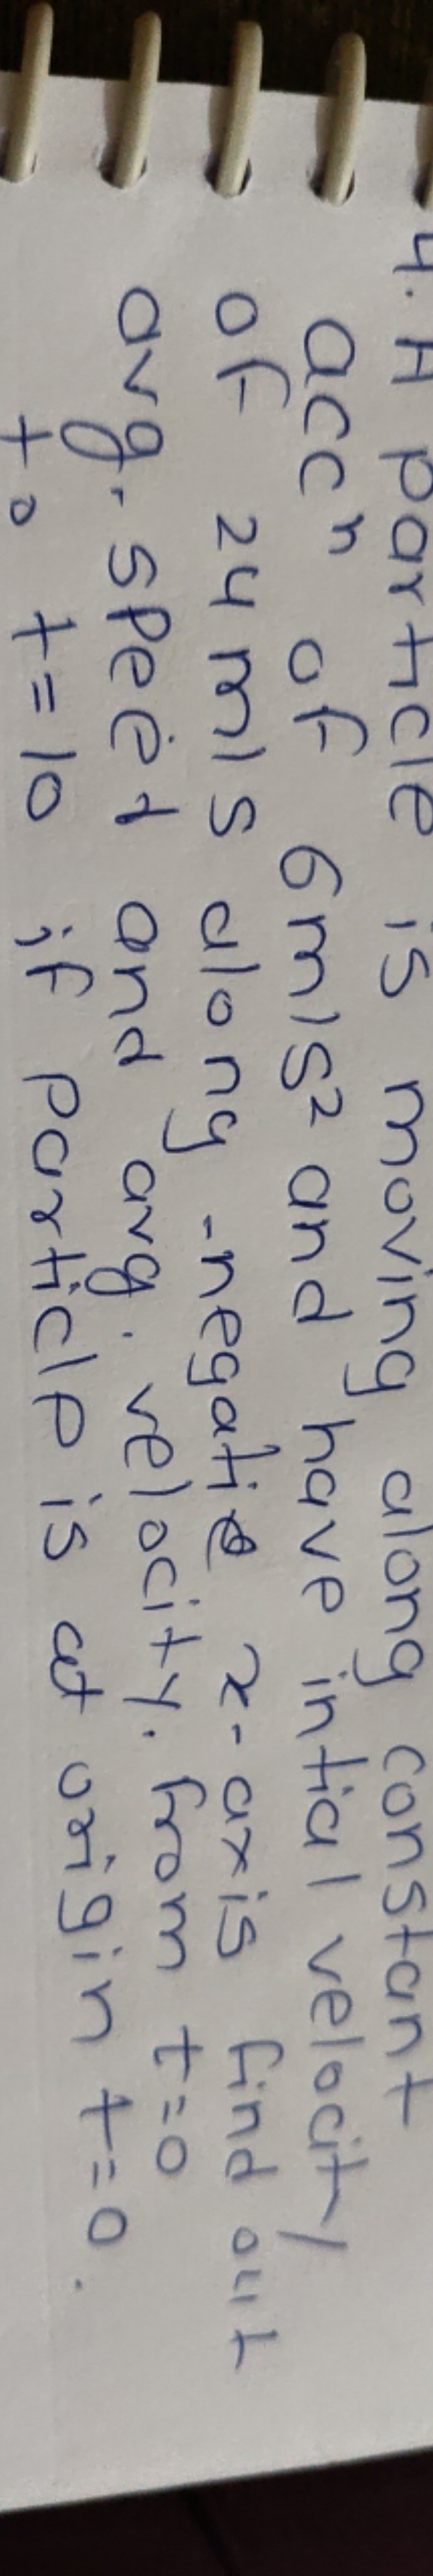 4. A particle is moving along constant
accⁿ of 6 m/s² and have intial velocity
of 24 m/s along -negatie x-axis find out
avg. speed and avg. velocity. from t=0
to t=10 if particle is at origin t=0.